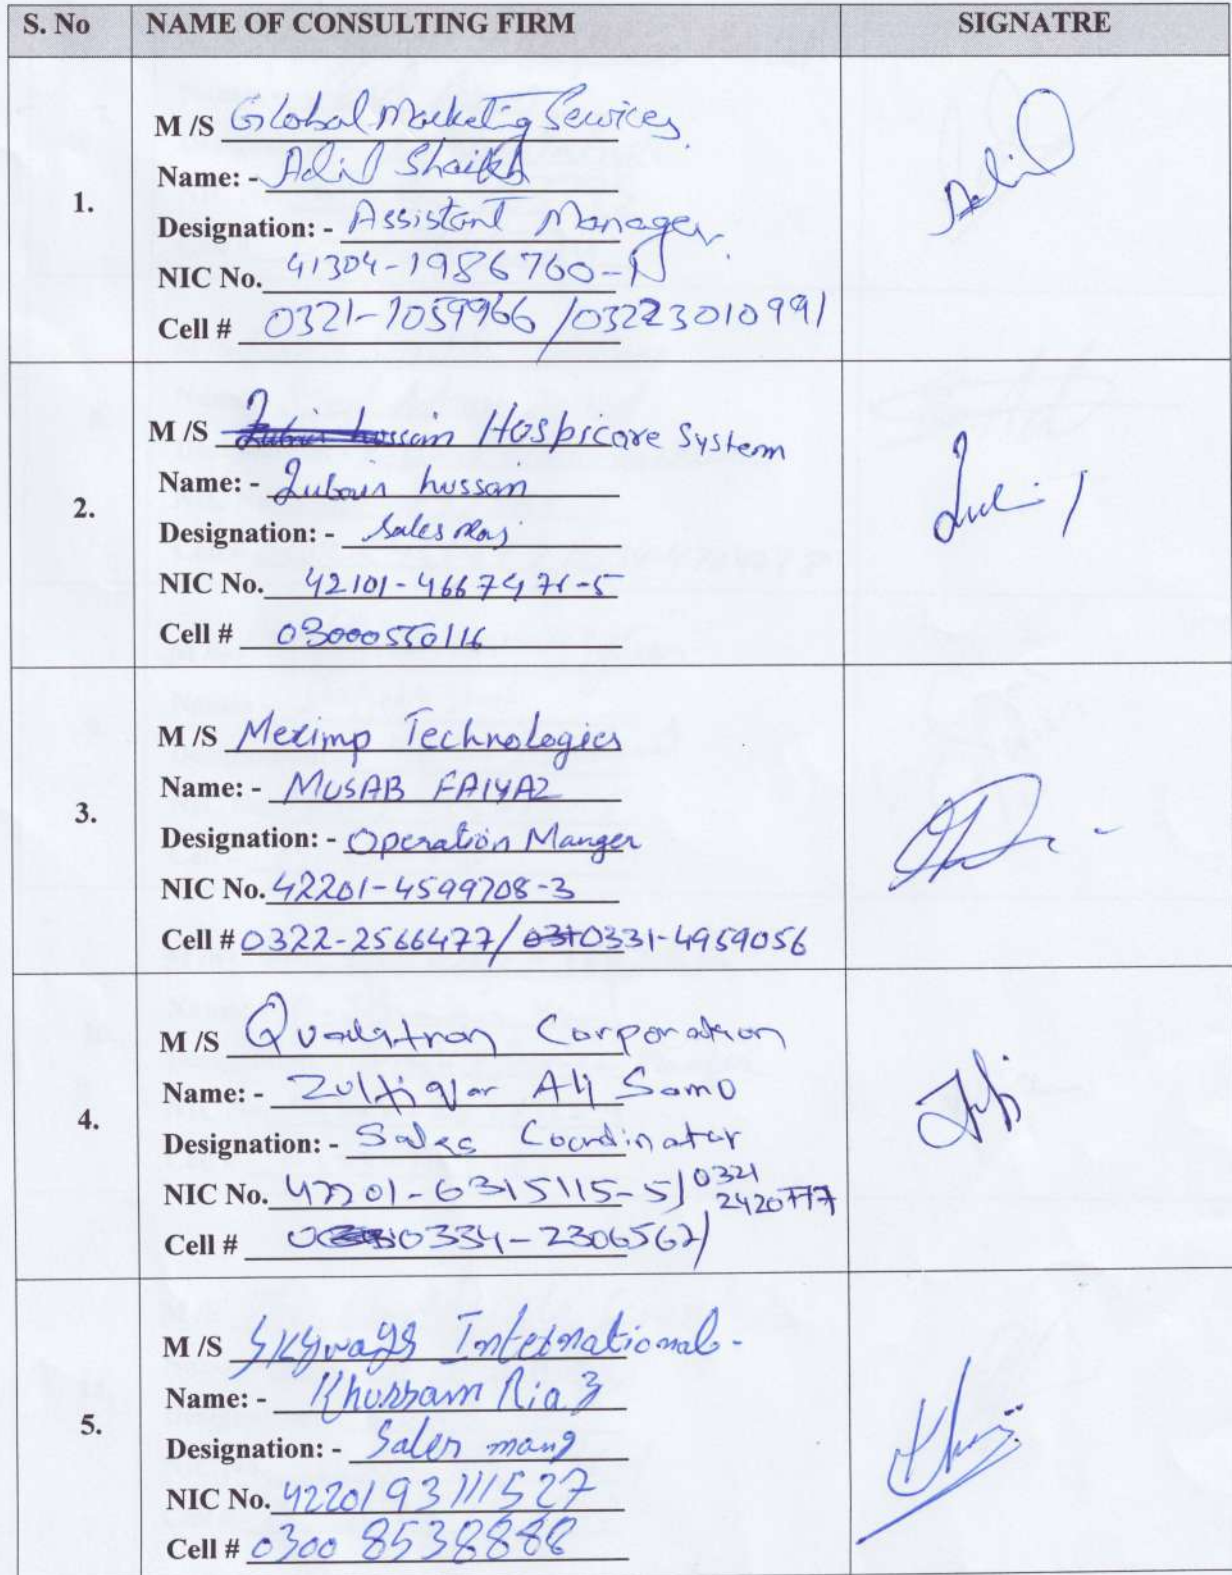 S. No NAME OF CONSULTING FIRM SIGNATRE
1.
M /S Global Marketing Services
Name: - Adil Shaikh
Designation: - Assistant Manager
NIC No. 41304-1986760-
Cell # 0321-7059966 /03223010991
Adil
2.
M /S Hospicare System
Name: - Zubair hussain
Designation: - Sales
NIC No. 42101-4667471-5
Cell # 03000550116
3.
M /S Meximp Technologies
Name: - MUSAB FAIYAZ
Designation: - Operation Manger
NIC No. 42201-4599708-3
Cell # 0322-2566477/ 0331-4959056
4.
M /S Qualitron Corporation
Name: - Zulfiqar Ali Samo
Designation: - Sales Coordinator
NIC No. 42201-6315115-5/ 0321
2420777
Cell # 0334-2306562/
5.
M /S Skyways International-
Name: - Khurram Riaz
Designation: - Sales mang
NIC No. 4220193111527
Cell # 0300 8538888